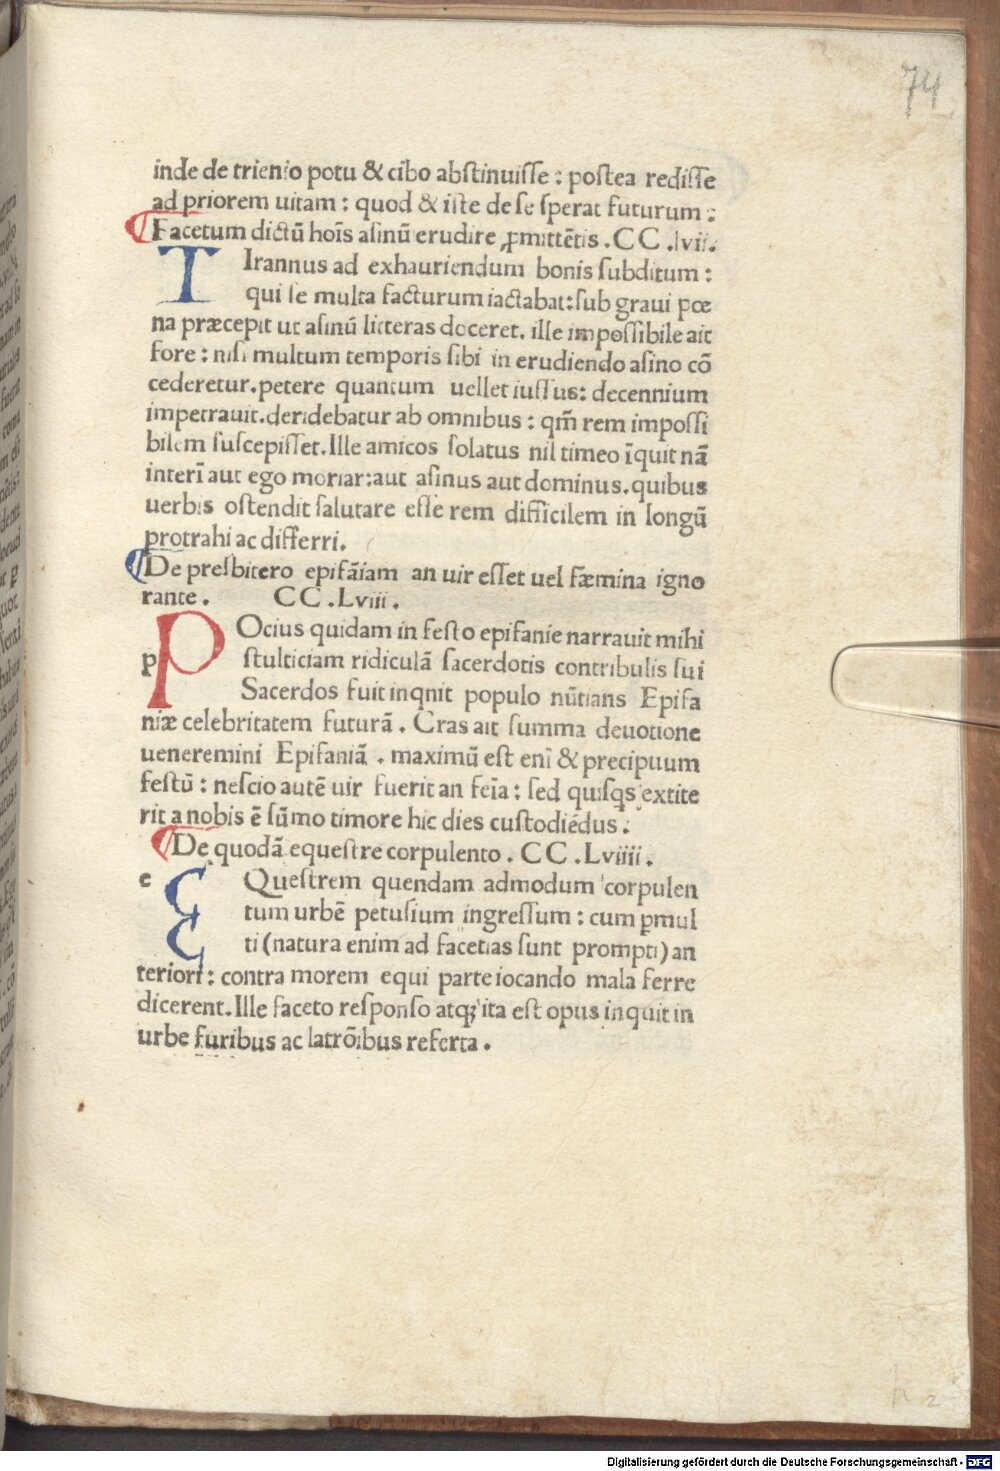 74
inde de trienio potu & cibo abstinuisse : postea redisse
ad priorem uitam : quod & iste de se sperat futurum :
Facetum dictū hoīs asinū erudire ꝓmittētis . CC . lvii .
TIrannus ad exhauriendum bonis subditum :
qui se multa facturum iactabat : sub graui pœ
na præcepit ut asinū litteras doceret . ille impossibile ait
fore : nisi multum temporis sibi in erudiendo asino cō
cederetur . petere quantum uellet iussus : decennium
impetrauit . deridebatur ab omnibus : qm̄ rem impossi
bilem suscepisset . Ille amicos solatus nil timeo īquit nā
interī aut ego moriar : aut asinus aut dominus . quibus
uerbis ostendit salutare esse rem difficilem in longū
protrahi ac differri .
De presbitero epifāiam an uir esset uel fæmina igno
rante . CC . Lviii .
POcius quidam in festo epifanie narrauit mihi
p stulticiam ridiculā sacerdotis contribulis sui
Sacerdos fuit inqnit populo nūtians Epifa
niæ celebritatem futurā . Cras ait summa deuotione
ueneremini Epifaniā . maximū est enī & precipuum
festū : nescio autē uir fuerit an feīa : sed quisqs extite
rit a nobis ē sūmo timore hic dies custodiēdus .
De quodā equestre corpulento . CC . Lviiii .
e EQuestrem quendam admodum corpulen
tum urbē petusium ingressum : cum ꝑmul
ti ( natura enim ad facetias sunt prompti ) an
teriori : contra morem equi parte iocando mala ferre
dicerent . Ille faceto responso atqꝫ ita est opus inquit in
urbe furibus ac latrōibus referta .
h 2
Digitalisierung gefördert durch die Deutsche Forschungsgemeinschaft - DFG